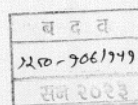 ब द व
1250-906/949
सन २०२३